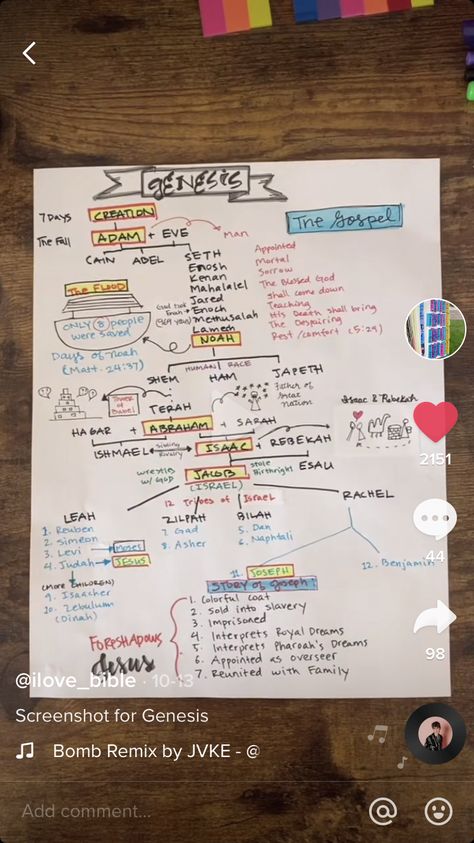 GENESIS
7 Days CREATION
The Gospel
The Fall ADAM + EVE
Man
CAIN ABEL SETH
Enosh
Kenan
Mahalalel
Jared
Enoch
Methusalah
Lamech
Appointed
Mortal
Sorrow
The Blessed God
Shall come down
Teaching
His Death shall bring
The Despairing
Rest/comfort (5:29)
THE FLOOD
God took
Enoch
(369 years)
ONLY 8 people
were saved
NOAH
Days of Noah
(Matt. 24:37)
HUMAN RACE
SHEM HAM JAPETH
Tower
of
Babel
TERAH
Father of
Great
nation
HAGAR + ABRAHAM + SARAH
Isaac & Rebekah
ISHMAEL
Sibling
Rivalry
ISAAC + REBEKAH
wrestles
w/ GOD
JACOB
(ISRAEL)
stole
Birthright
ESAU
12 Tribes of Israel
RACHEL
LEAH
1. Reuben
2. Simeon
3. Levi → Moses
4. Judah → JESUS
(MORE CHILDREN)
9. Isaacher
10. Zebulum
(Dinah)
ZILPAH
7. Gad
8. Asher
BILAH
5. Dan
6. Naphtali
11. JOSEPH
12. Benjamin
STORY of Joseph:
1. Colorful coat
2. Sold into slavery
3. Imprisoned
4. Interprets Royal Dreams
5. Interprets Pharoah's Dreams
6. Appointed as overseer
7. Reunited with Family
FORESHADOWS
Jesus
2151
44
98
@ilove_bible · 10-13
Screenshot for Genesis
Bomb Remix by JVKE - @
Add comment...
@